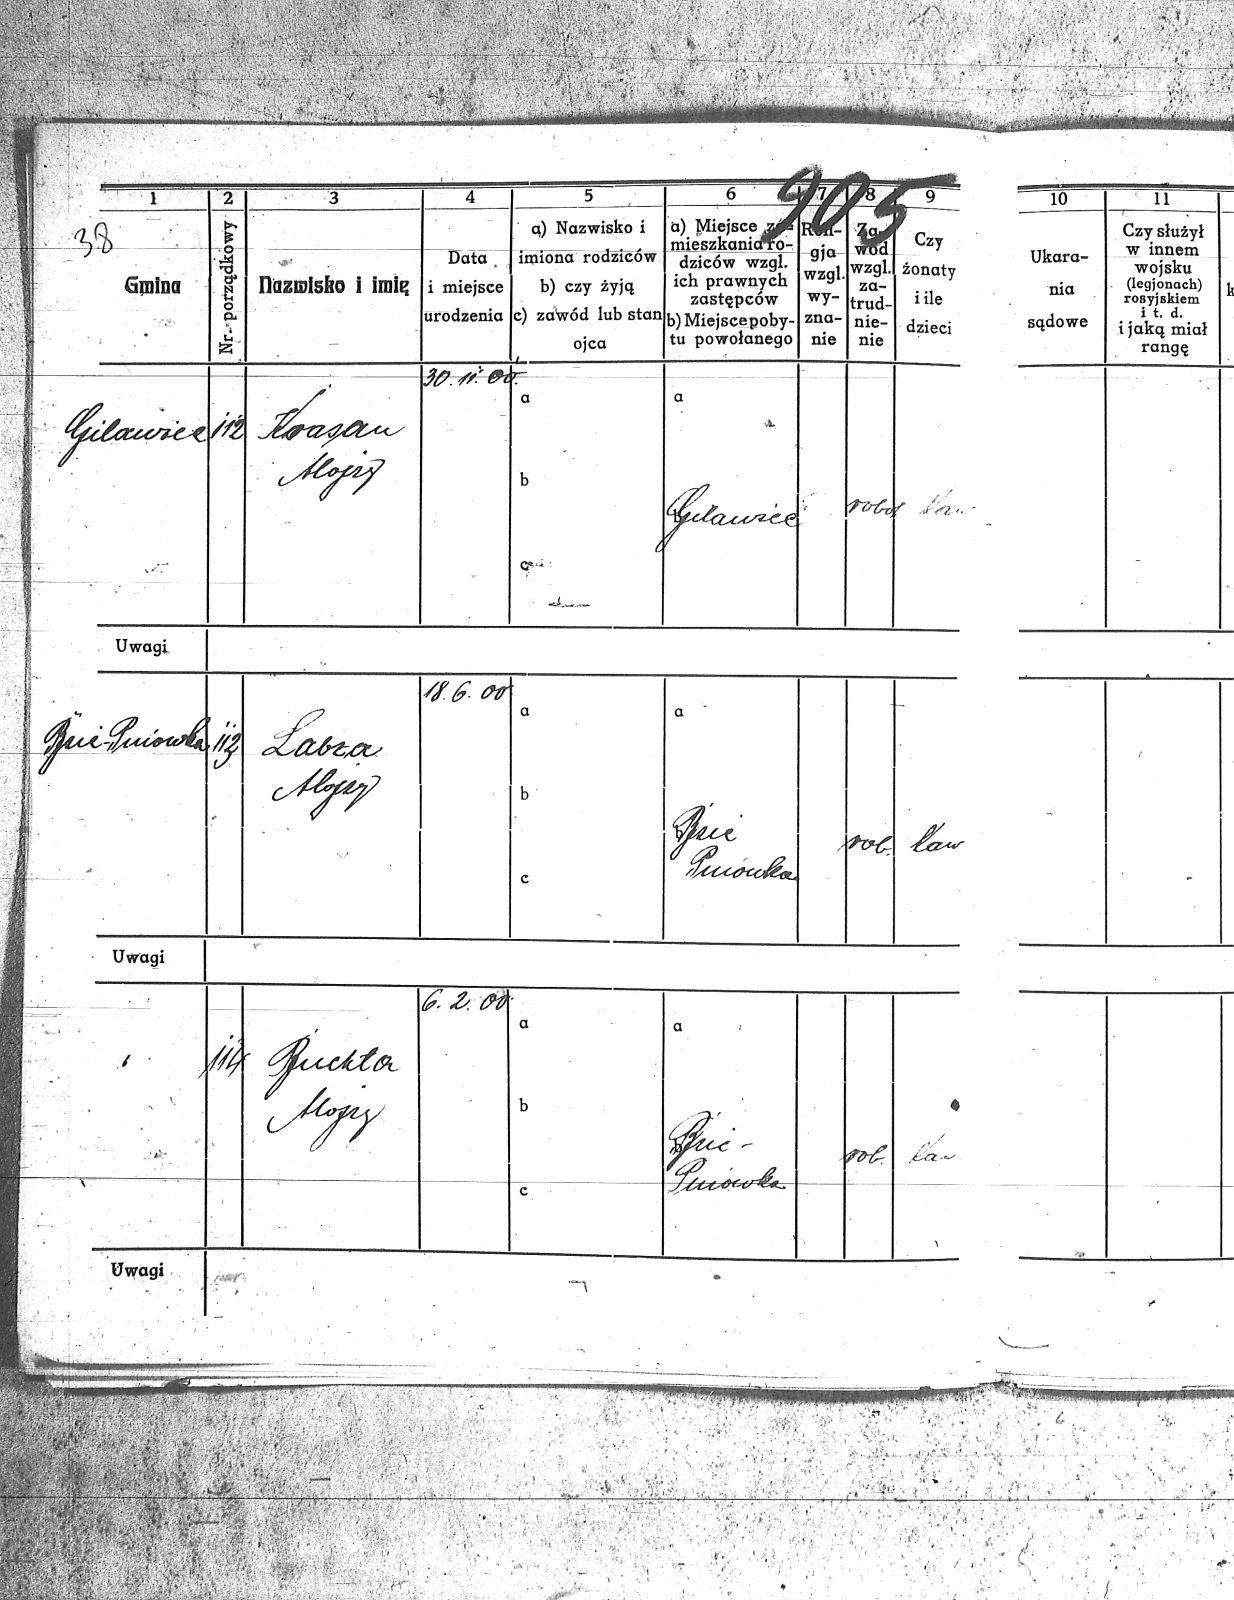 905
38
1 2 3 4 5 6 7 8 9 10 11
Gmina
Nr. porządkowy
Nazwisko i imię
Data
i miejsce
urodzenia
a) Nazwisko i
imiona rodziców
b) czy żyją
c) zawód lub stan
ojca
a) Miejsce za-
mieszkania ro-
dziców wzgl.
ich prawnych
zastępców
b) Miejsce poby-
tu powołanego
Reli-
gja
wzgl.
wy-
zna-
nie
Za-
wód
wzgl.
za-
trud-
nie-
nie
Czy
żonaty
i ile
dzieci
Ukara-
nia
sądowe
Czy służył
w innem
wojsku
(legjonach)
rosyjskiem
i t. d.
i jaką miał
rangę
k
30. 11. 00.
a a
Gilawiec 112 Krasan
Alojzy
b
Gilawiec robot kaw
c
Uwagi
18. 6. 00
a a
Bzie-Pniowka 113 Labza
Alojzy
b
Bzie rob. kaw
Pniowka
c
Uwagi
6. 2. 00
a a
114 Buchta
Alojzy
b
Bzie- rob. kaw
Pniowka
c
Uwagi